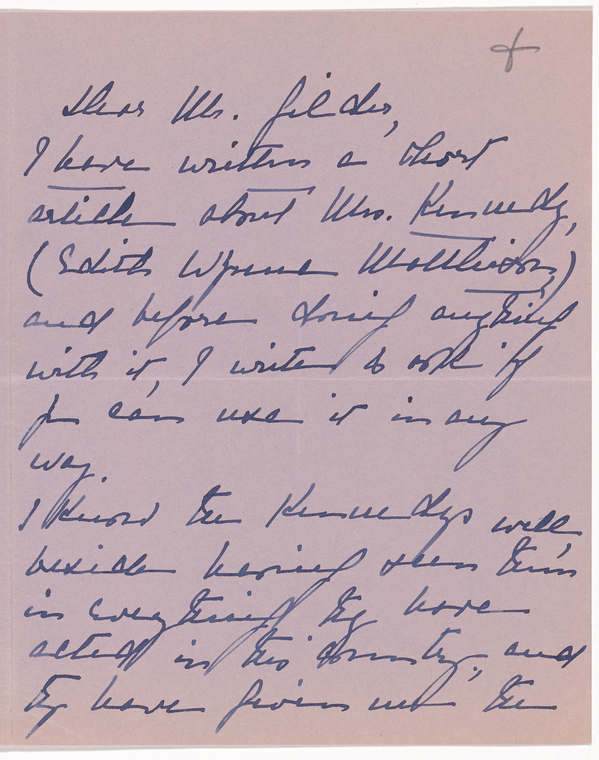 Dear Mr. Gilder,
I have written a short
article about Mrs. Kennedy,
(Edith Wynne Matthison,)
and before doing anything
with it, I write to ask if
you can use it in any
way.
I know the Kennedys well,
beside having seen them
in everything they have
acted in this country, and
they have given me the